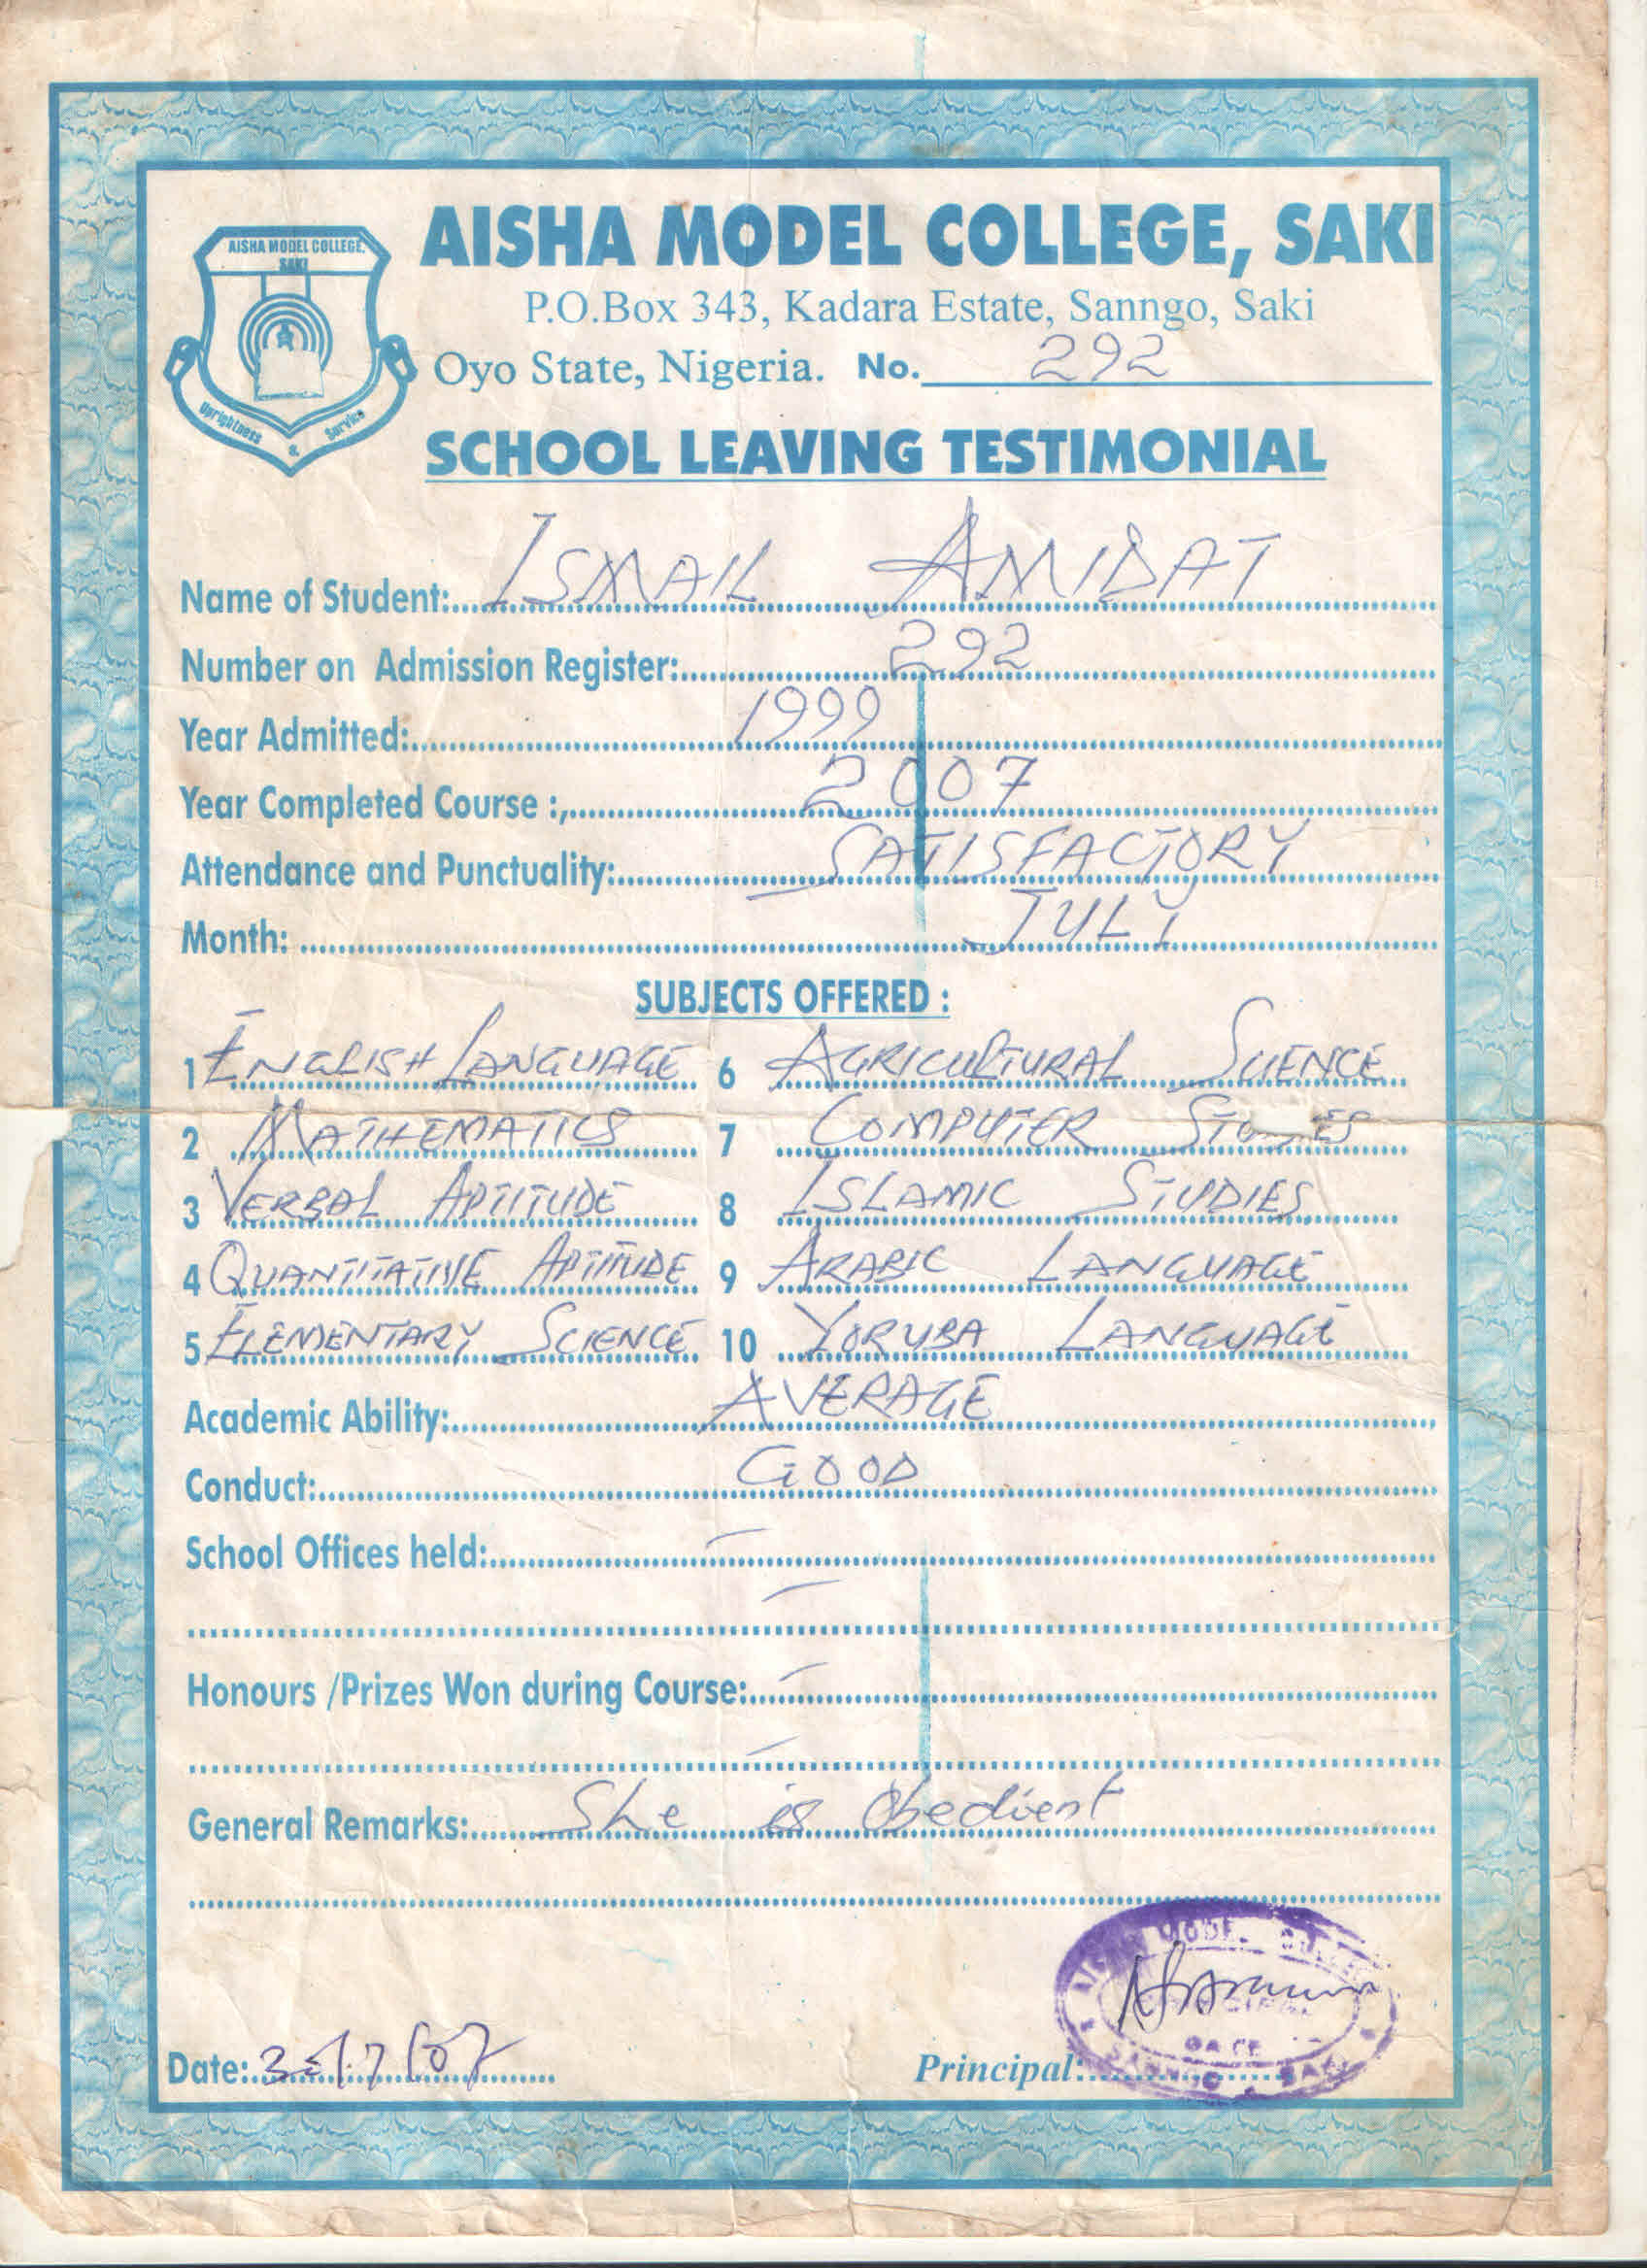 AISHA MODEL COLLEGE, SAKI
AISHA MODEL COLLEGE,
SAKI
Uprightness & Service
P.O.Box 343, Kadara Estate, Sanngo, Saki
Oyo State, Nigeria. No. 292
SCHOOL LEAVING TESTIMONIAL
Name of Student: ISMAIL AMIDAT
Number on Admission Register: 292
Year Admitted: 1999
Year Completed Course :, 2007
Attendance and Punctuality: SATISFACTORY
Month: JULY
SUBJECTS OFFERED :
1 ENGLISH LANGUAGE 6 AGRICULTURAL SCIENCE
2 MATHEMATICS 7 COMPUTER STUDIES
3 VERBAL APTITUDE 8 ISLAMIC STUDIES
4 QUANTITATIVE APTITUDE 9 ARABIC LANGUAGE
5 ELEMENTARY SCIENCE 10 YORUBA LANGUAGE
Academic Ability: AVERAGE
Conduct: GOOD
School Offices held: –
–
Honours /Prizes Won during Course: –
–
General Remarks: She is Obedient
MODEL
PRINCIPAL
DATE
SANNGO SAKI
Date: 30/7/07 Principal: